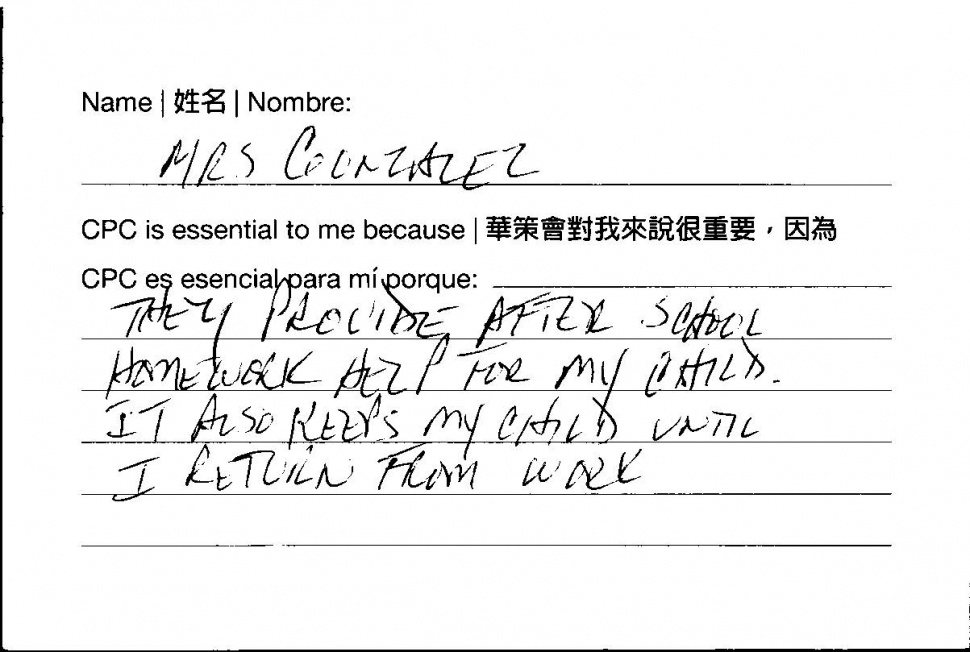 Name | 姓名 | Nombre:
MRS GONZALEZ
CPC is essential to me because | 華策會對我來說很重要，因為
CPC es esencial para mí porque:
THEY PROVIDE AFTER SCHOOL
HOMEWORK HELP FOR MY CHILD.
IT ALSO KEEPS MY CHILD UNTIL
I RETURN FROM WORK